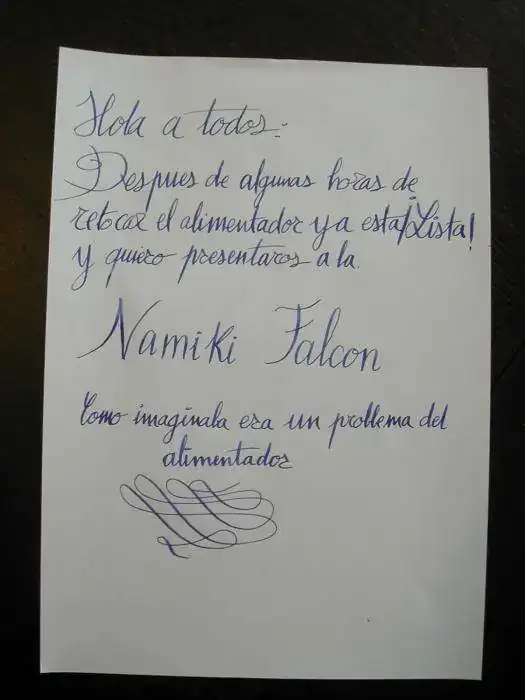 Hola a todos:
Despues de algunas horas de
retocar el alimentador ya esta ¡Lista!
y quiero presentaros a la
Namiki Falcon
Como imaginaba era un problema del
alimentador